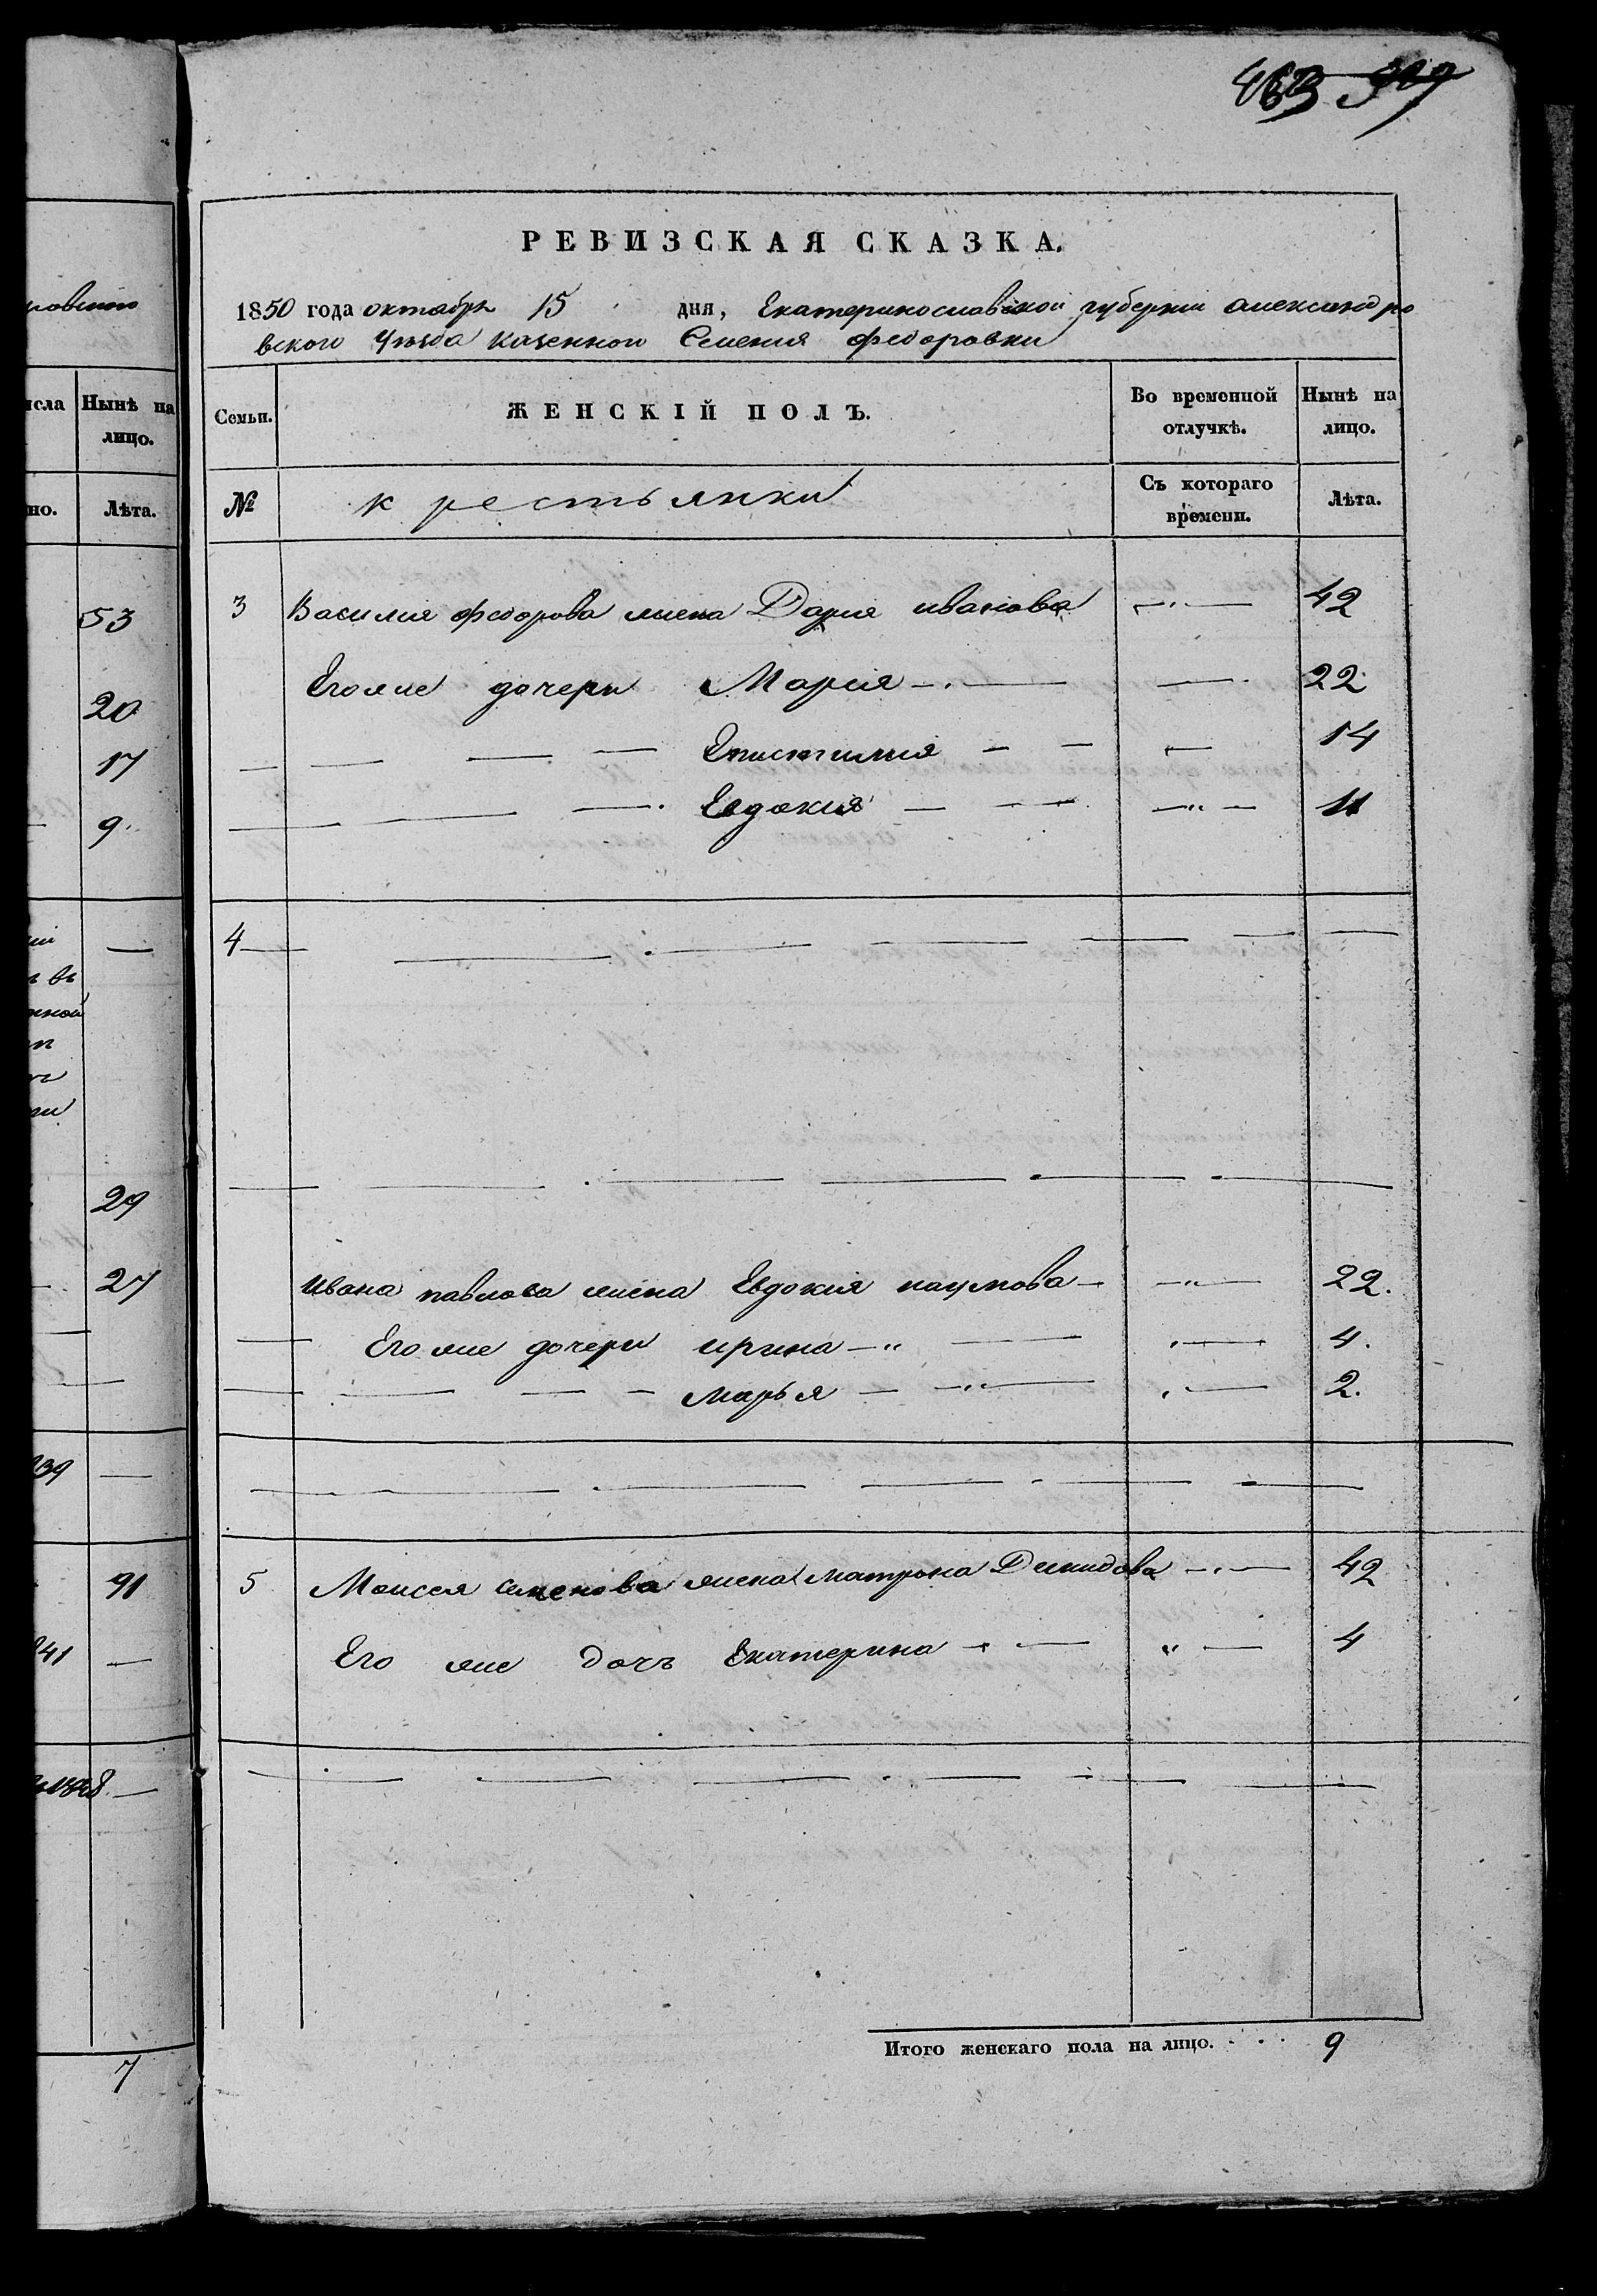 463
РЕВИЗСКАЯ СКАЗКА.
1850 года октября 15 дня, Екатеринославской губернии александро
вского Уѣзда казенной Селения федоровки
Семьи. ЖЕНСКІЙ ПОЛЪ. Во временной отлучкѣ. Нынѣ на лицо.
№ крестьянки Съ котораго времени. Лѣта.
3 Василия федорова жена Дария иванова — 42
Егоже дочери Мария — 22
— Епистимия — 14
— Евдокия — 11
4 —
Ивана павлова жена Евдокия наумова — 22.
Егоже дочери ирина — 4.
— марья — 2.
5 Моисея семенова жена матрона Демидова — 42
Его же дочь Екатерина — 4
Итого женскаго пола на лицо. . . . 9
ровского
исла Нынѣ на лицо.
но. Лѣта.
53
20
17
9
—
въ
нной
29
27
39 —
91
41 —
7